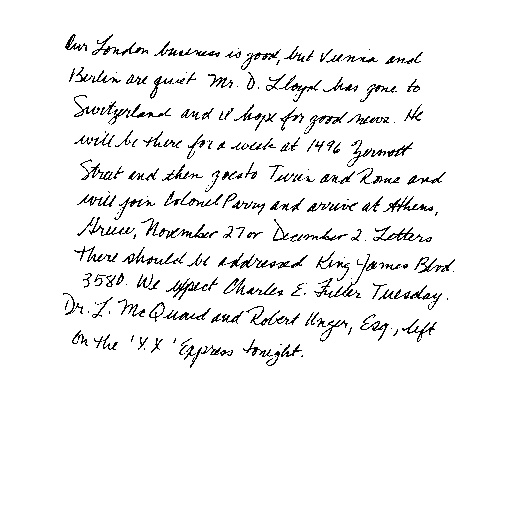 Our London business is good, but Vienna and
Berlin are quiet. Mr. D. Lloyd has gone to
Switzerland and I hope for good news. He
will be there for a week at 1496 Zermott
Street and then goes to Turin and Rome and
will join Colonel Parry and arrive at Athens,
Greece, November 27 or December 2. Letters
there should be addressed King James Blvd.
3580. We expect Charles E. Fuller Tuesday.
Dr. L. McQuaid and Robert Unger, Esq., left
on the 'Y.X' Express tonight.